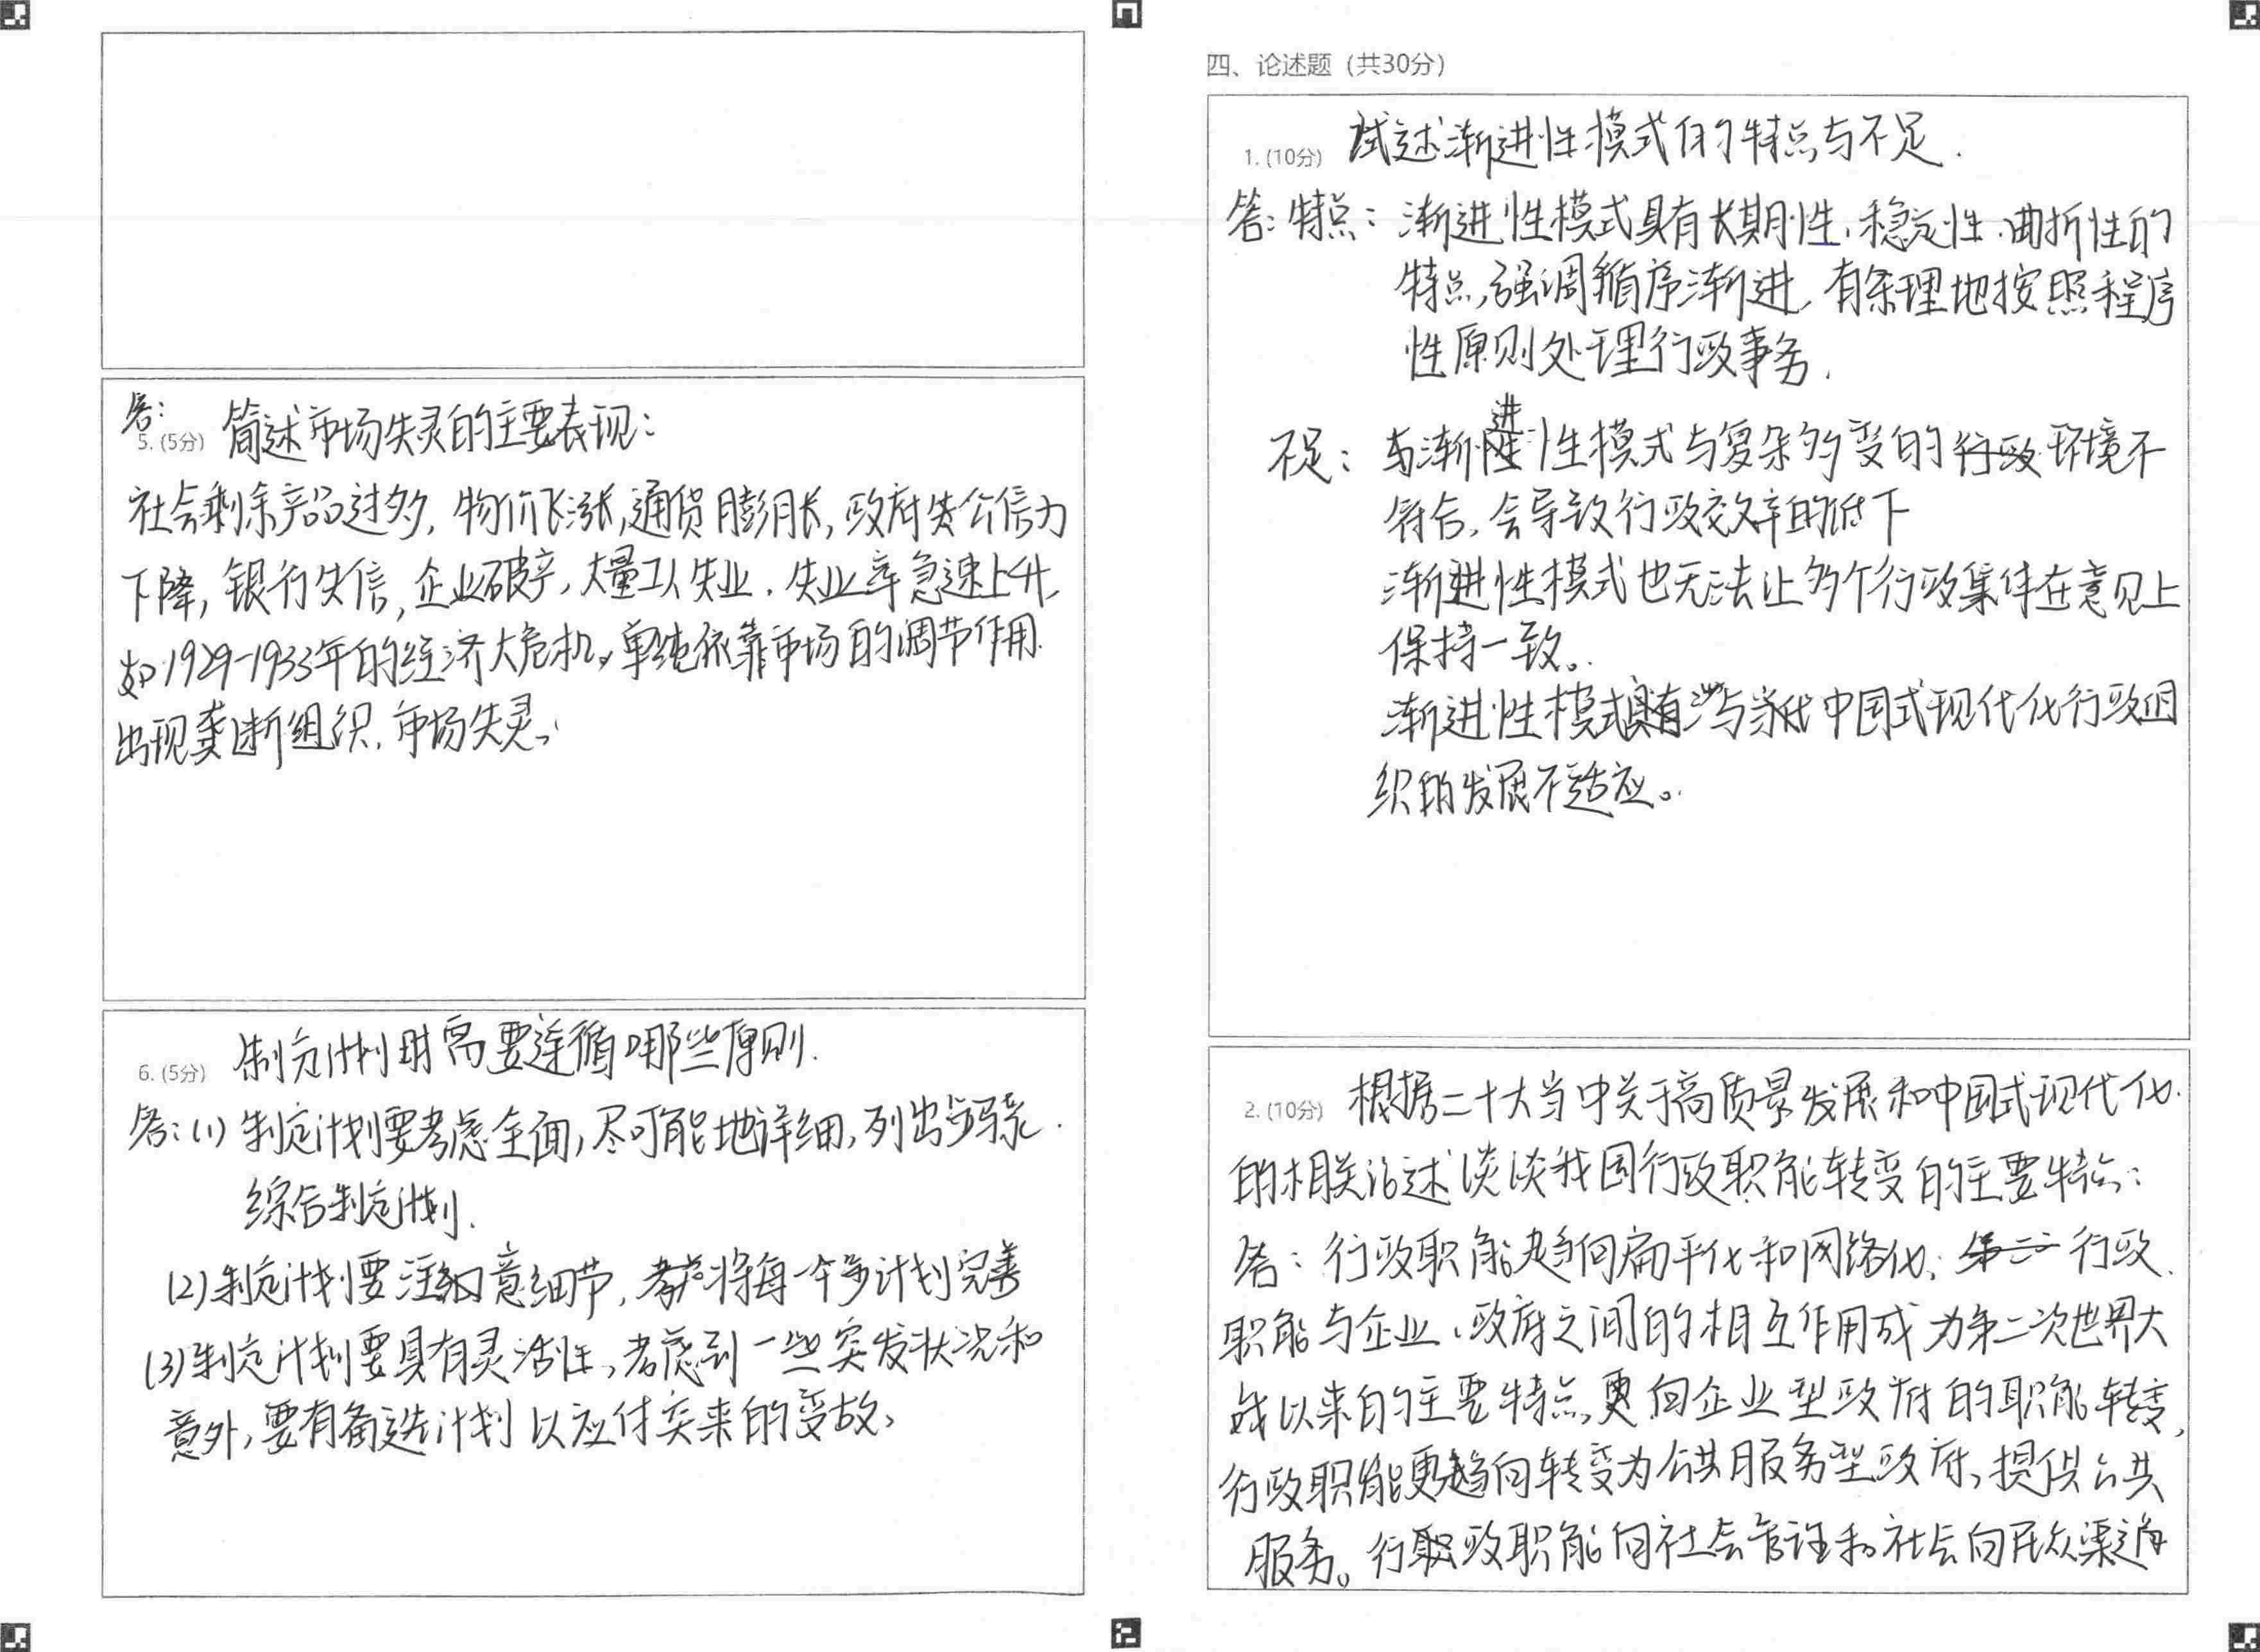 答:
5. (5分) 简述市场失灵的主要表现:
社会剩余产品过多, 物价飞涨, 通货膨胀, 政府失公信力
下降, 银行失信, 企业破产, 大量工人失业. 失业率急速上升,
如1929-1933年的经济大危机, 单纯依靠市场的调节作用.
出现垄断组织, 市场失灵。
6. (5分) 制定计划时需要遵循哪些原则.
答:(1) 制定计划要考虑全面, 尽可能地详细, 列出步骤.
综合制定计划.
(2)制定计划要注意细节, 将每一个步计划完善
(3)制定计划要具有灵活性, 考虑到一些突发状况和
意外, 要有备选计划以应付突来的变故,
四、论述题 (共30分)
1. (10分) 试述渐进性模式的特点与不足.
答: 特点: 渐进性模式具有长期性、稳定性、曲折性的
特点, 强调循序渐进, 有条理地按照程序
性原则处理行政事务.
不足: 与渐进性模式与复杂多变的行政环境不
符合, 会导致行政效率的低下
渐进性模式也无法让多个行政集体在意见上
保持一致。
渐进性模式与当代中国式现代化行政组
织的发展不适应。
2. (10分) 根据二十大当中关于高质量发展和中国式现代化.
的相关论述谈谈我国行政职能转变的主要特点:
答: 行政职能趋向扁平化和网络化, 行政.
职能与企业、政府之间的相互作用成为第二次世界大
战以来的主要特点, 更向企业型政府的职能转变,
行政职能更趋向转变为公共服务型政府, 提供公共
服务。行政职能向社会管理和社会向民众渠道